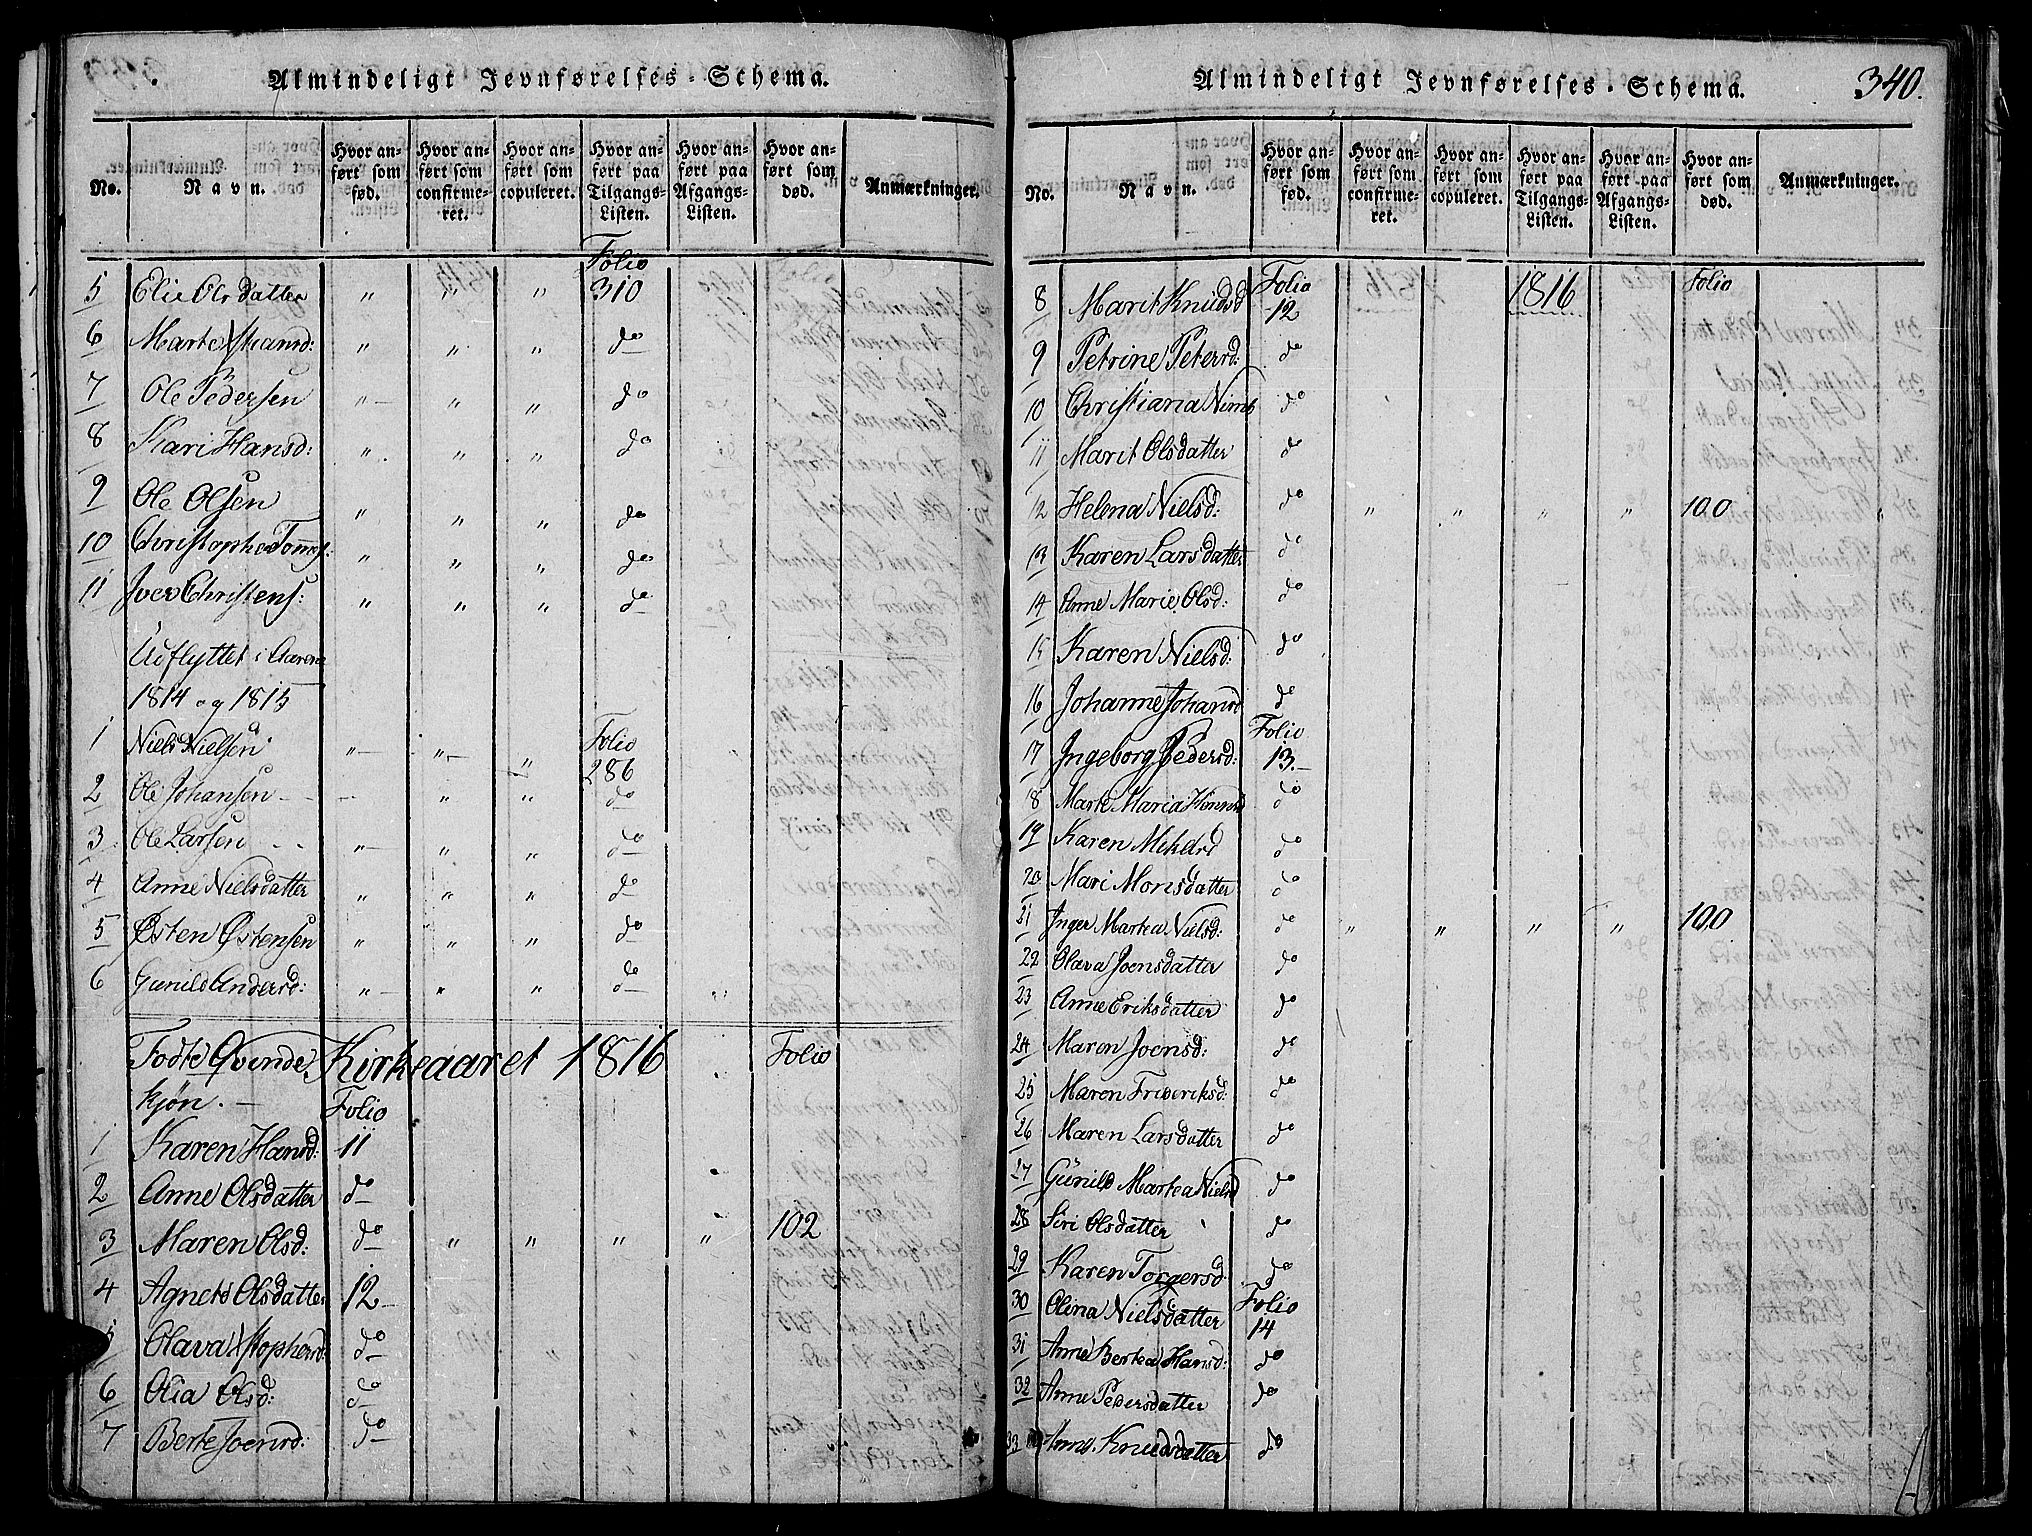 Almindeligt Jevnførelses-Schema.
No. Navn. Hvor anført som fød. Hvor anført som confirmeret. Hvor anført som copuleret. Hvor anført paa Tilgangs-Listen. Hvor anført paa Afgangs-Listen. Hvor anført som død. Anmærkninger.
Folio
5 Elie Olsdatter " " " 310
6 Marte " " " do
7 Ole Pedersen " " " do
8 Kari Hansd: " " " do
9 Ole Olsen " " " do
10 " " " do
11 Iver Christens: " " " do
Udflyttet i Aarene
1814 og 1815
1 Niels Nielsen " " " Folio
286
2 Ole Johansen " " do
3 Ole Larsen " " " do
4 Anne Nielsdatter " " " do
5 Østen Østensen " " " do
6 Gunild Andersd: " " " do "
Fødte Qvinde Kirkeaaret 1816 Folio
kjøn. Folio
1 Karen Hansd: 11
2 Anne Olsdatter do
3 Maren Olsd: do " " " " 102
4 Agnete Olsdatter 12
5 Olava do
6 Olia Olsd: do
7 Berte Joensd: do
Almindeligt Jevnførelses-Schema. 340.
No. Navn. Hvor anført som fød. Hvor anført som confirmeret. Hvor anført som copuleret. Hvor anført paa Tilgangs-Listen. Hvor anført paa Afgangs-Listen. Hvor anført som død. Anmærkninger.
8 Marit Knudsd Folio 1816 Folio
12
9 Petrine Petersd: do
10 Christiana do
11 Marit Olsdatter do
12 Helena Nielsd: do " " " " 100 "
13 Karen Larsdatter do
14 Anne Marie Olsd: do
15 Karen Nielsd: do
16 Johanne Johansd do
17 Ingeborg Pedersd: Folio
13.
18 Marte Maria do
19 Karen do
20 Mari Monsdatter do
21 Inger Martea Nielsd: do " " " " 100
22 Olava Joensdatter do
23 Anne Eriksdatter do
24 Maren Joensd: do
25 Maren Frideriksd: do
26 Maren Larsdatter do
27 Gunild Martea Nielsd do
28 Siri Olsdatter do
29 Karen Torgersd do
30 Olina Nielsdatter Folio
14
31 Anne Bertea Hansd: do
32 Anne Pedersdatter do
33 Anne Knudsdatter do